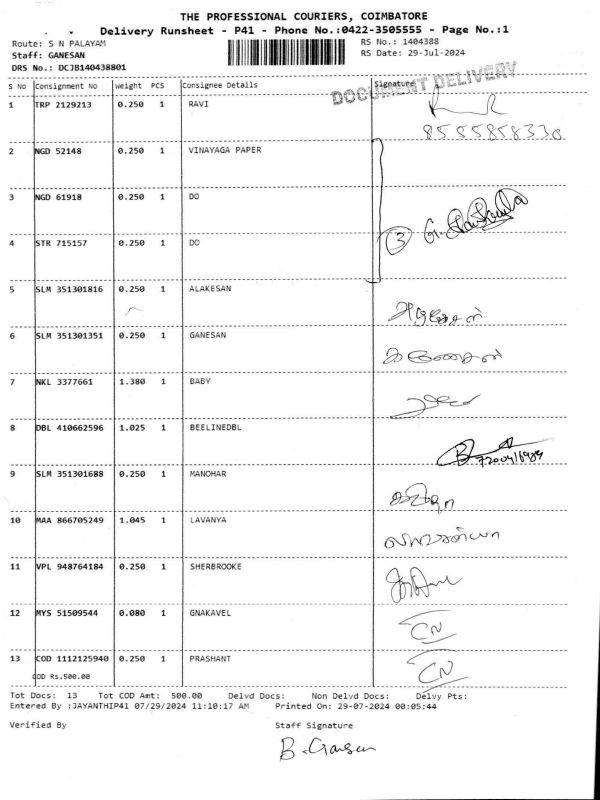 THE PROFESSIONAL COURIERS, COIMBATORE
Delivery Runsheet - P41 - Phone No.:0422-3505555 - Page No.:1
Route: S N PALAYAM RS No.: 1404388
Staff: GANESAN RS Date: 29-Jul-2024
DRS No.: DCJB140438801
DOCUMENT DELIVERY
S No Consignment No Weight PCS Consignee Details Signature
1 TRP 2129213 0.250 1 RAVI
8585858330
2 NGD 52148 0.250 1 VINAYAGA PAPER
3 NGD 61918 0.250 1 DO
4 STR 715157 0.250 1 DO
3
5 SLM 351301816 0.250 1 ALAKESAN
6 SLM 351301351 0.250 1 GANESAN
கணேசன்
7 NKL 3377661 1.380 1 BABY
8 DBL 410662596 1.025 1 BEELINEDBL
9 SLM 351301688 0.250 1 MANOHAR
10 MAA 866705249 1.045 1 LAVANYA
லாவண்யா
11 VPL 948764184 0.250 1 SHERBROOKE
12 MYS 51509544 0.080 1 GNAKAVEL
CN
13 COD 1112125940 0.250 1 PRASHANT
CN
COD Rs.500.00
Tot Docs: 13 Tot COD Amt: 500.00 Delvd Docs: Non Delvd Docs: Delvy Pts:
Entered By :JAYANTHIP41 07/29/2024 11:10:17 AM Printed On: 29-07-2024 00:05:44
Verified By Staff Signature